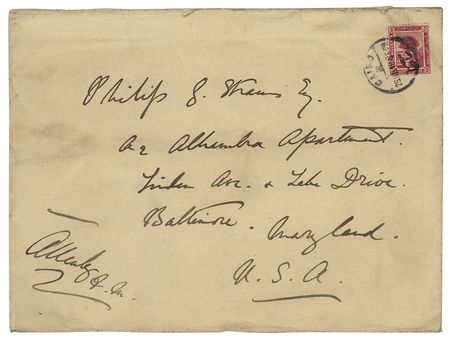 CAIRO
Philip G. Straus Esq.
A2 Alhambra Apartment.
Linden Ave. & Lake Drive.
Baltimore. Maryland.
U. S. A.
Allenby F. M.